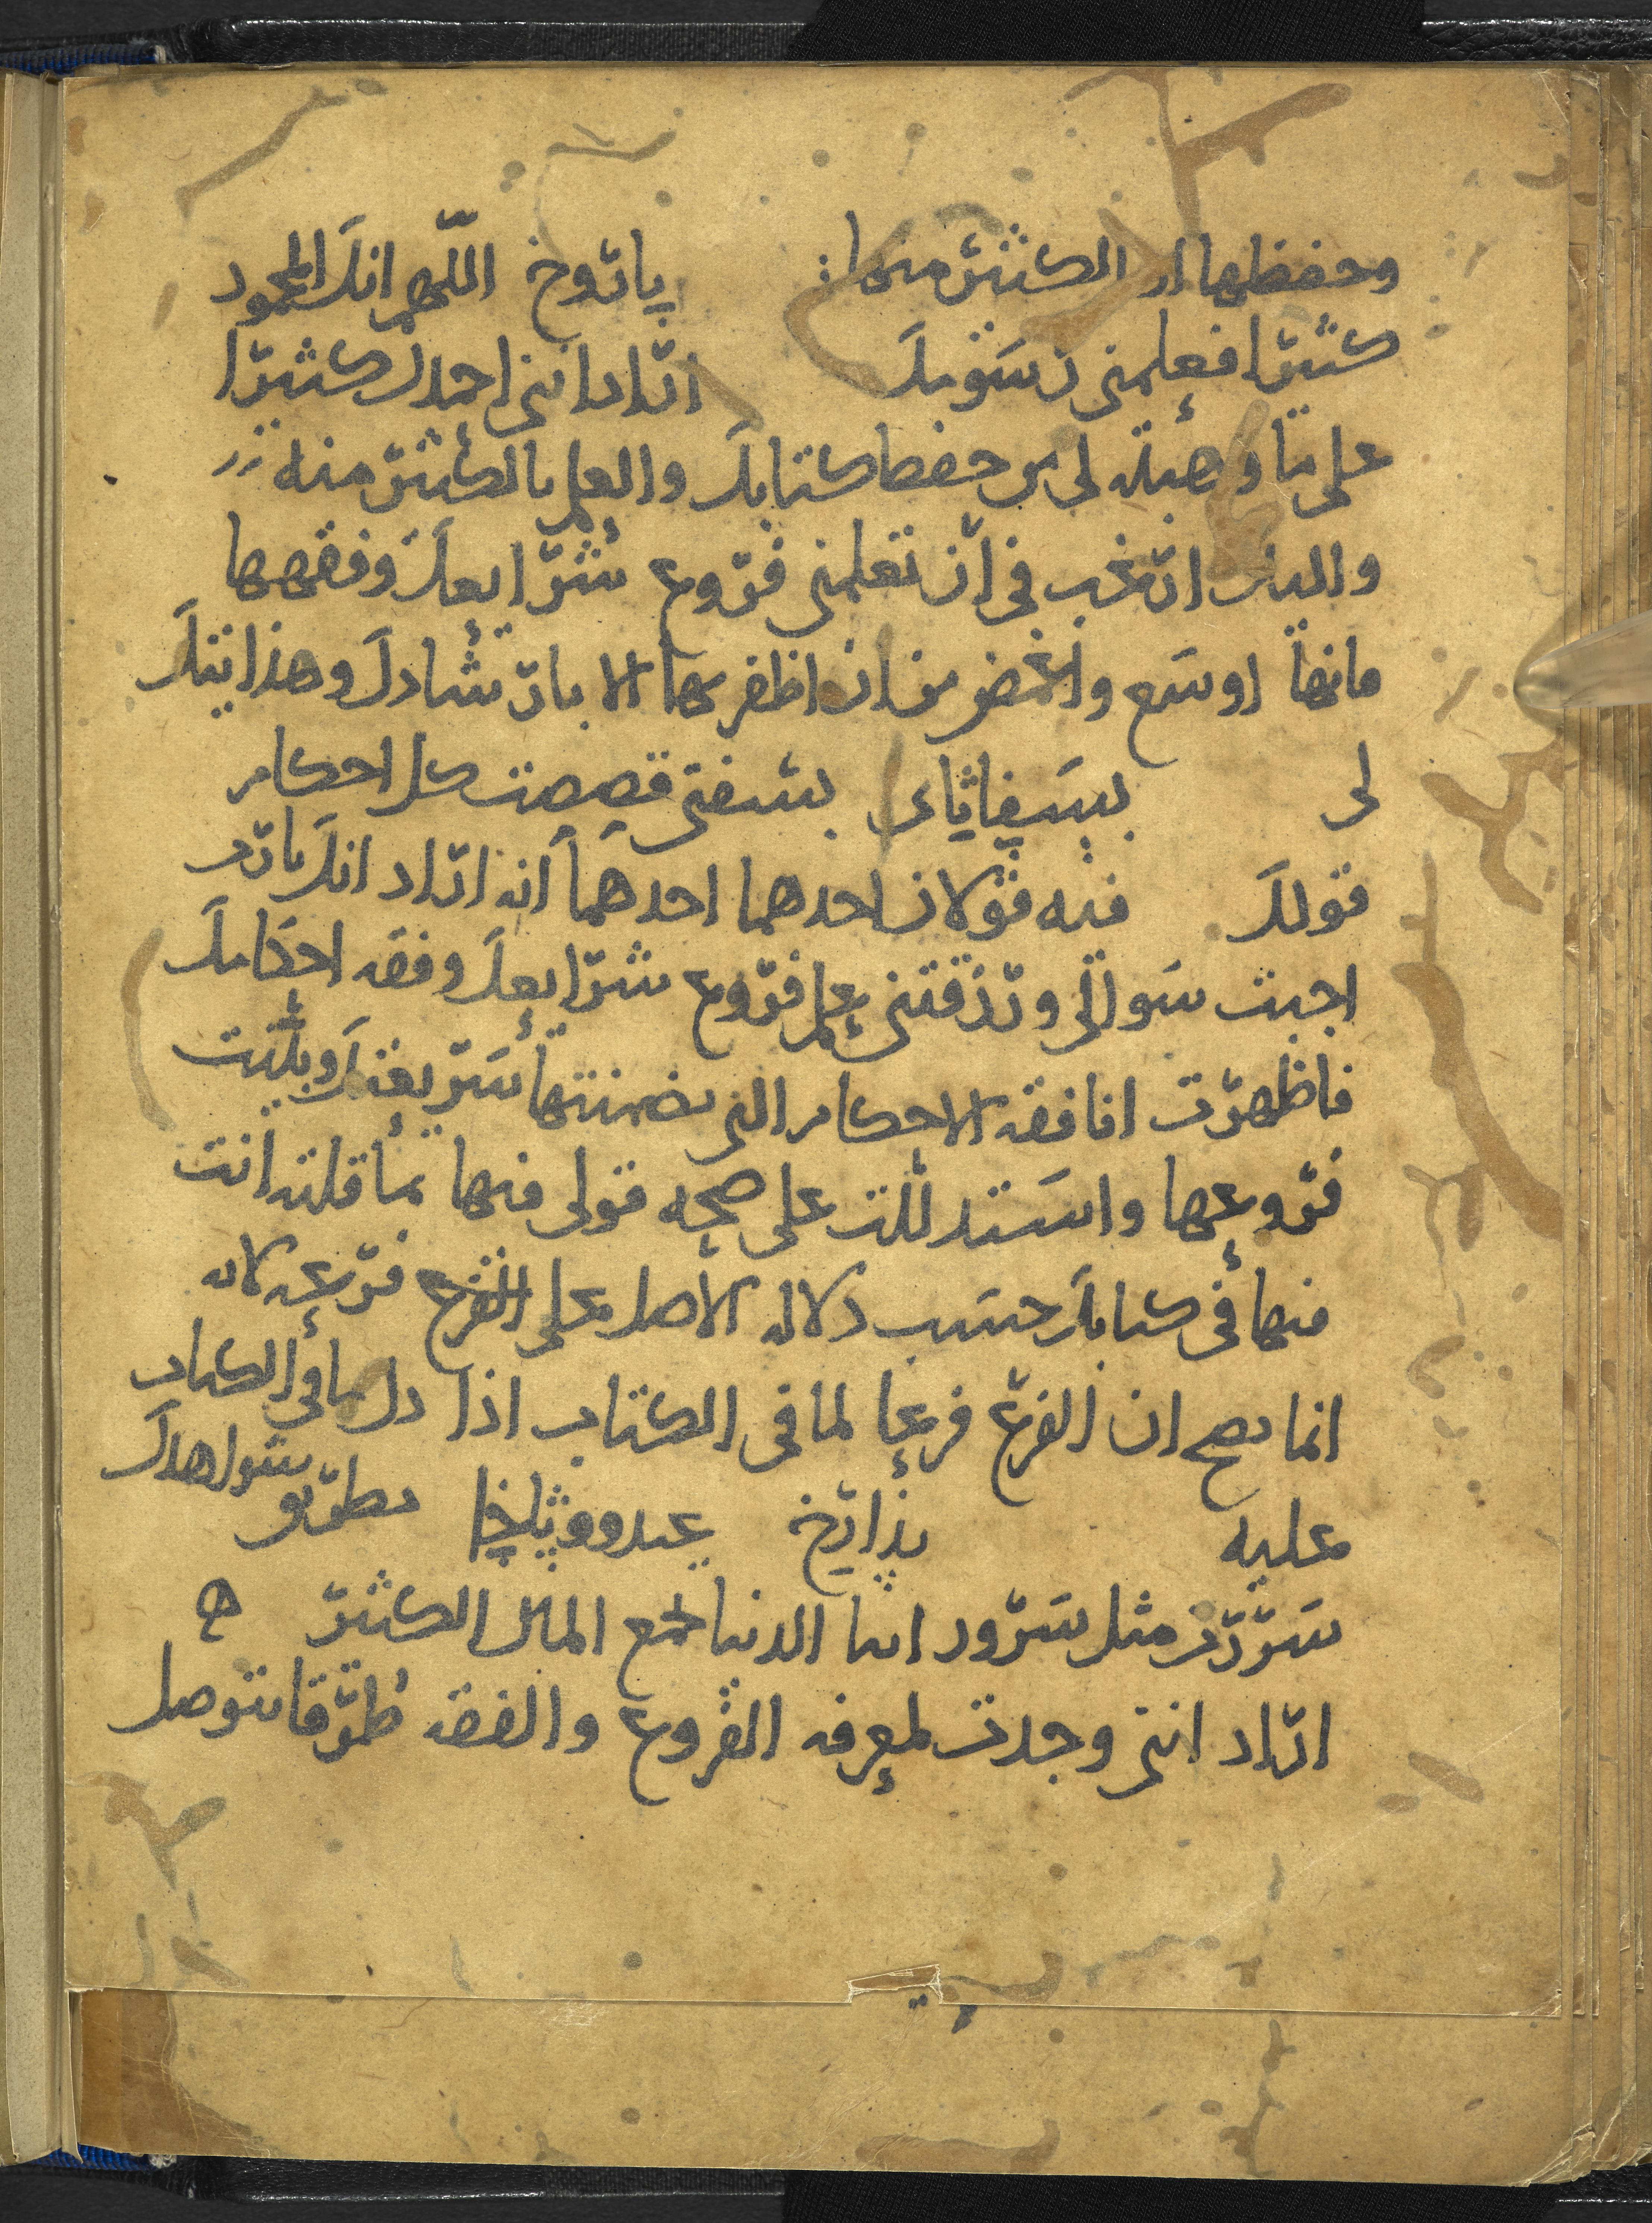 وحفظها او الكثير منها : باروخ اللهم انك المحمود
كثيرا فعلمني رسومك اراد انني احمدك كثيرا
على ما وهبته لي من حفظ كتابك والعلم بالكثير منه
واليك ارغب في ان تعلمني فروع شرايعك وفقهها
فانها اوسع واغمض من ان اظفر بها الا بارشادك وهدايتك
لي بسفاثاي سفرتي قصصت كل احكام
قولك فيه قولان احدهما احدهما انه اراد انك يا رب
اجبت سوالي ورزقتني علم فروع شرايعك وفقه احكامك
فاظهرت انا فقه الاحكام التي تضمنتها شريعتك وبثثت
فروعها واستدللت على صحه قولي فيها بما قلته انت
فيها في كتابك حسب دلاله الاصل على الفرع فرعه لانه
انما يصح ان الفرع فرعا لما في الكتاب اذا دل ما في الكتاب
عليه بذارخ عيدووثاخا بطريق شواهدك
سررت مثل سرور ابنا الدنيا بجمع المال الكثير ه
اراد انني وجدت لمعرفه الفروع والفقه طرقا يتوصل